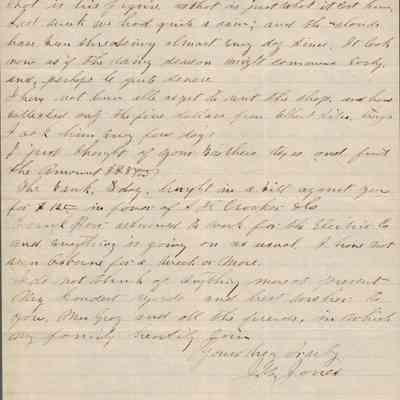 that is his figure as that is just what it cost him,
Last week we had quite a rain; and the clouds
have been threatening almost every day since. It looks
now as if the rainy season might commence early,
and, perhaps be quite severe.
I have not been able as yet to rent the shop, and have
collected only the five dollars from Elliott since, though
I ask him every few days
I just thought of your brothers taxes and find
the Amount $
The Bank, today, brought in a bill against you
for $ in favor of Crocker & Co
Frank has returned to work for the Electric Co
and everything is going on as usual. I have not
seen Osborne for a week or more.
I do not think of anything more at present
My kindest regards and best wishes to
you, Mrs Gray and all the friends, in which
my family heartily join
Yours very truly
Jones